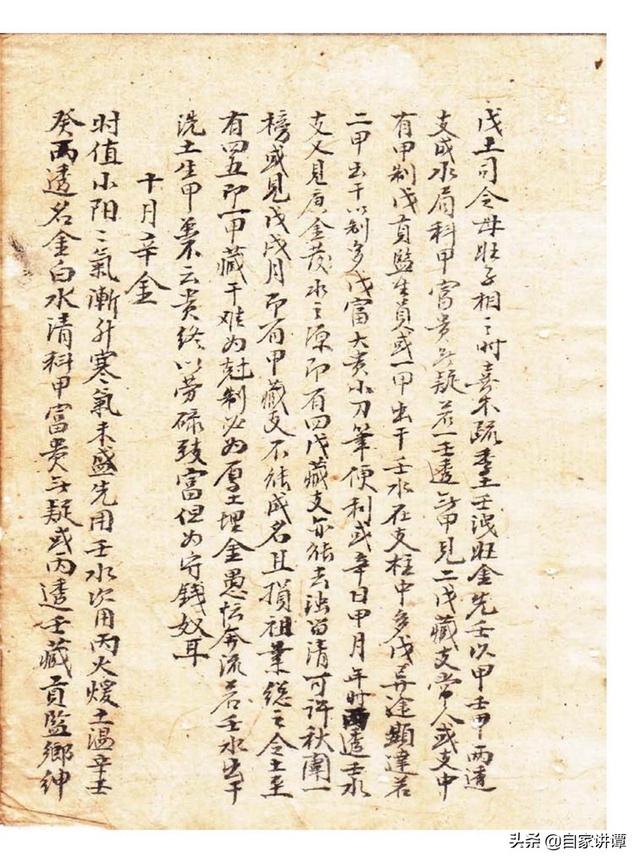 戊土司令母旺子相之时喜木疏季土壬洩旺金先壬次甲壬甲两透
支成水局科甲富貴无疑若一壬透无甲見二戊藏支常人或支中
有甲制戊貢監生員或一甲出干壬水在支柱中多戊异途顯達若
二甲出干以制多戊富大貴小刀筆便利或辛日甲月年时两透壬水
支又見庚金發水之源即有四戊藏支亦能去浊留清可許秋闈一
榜或見戊戌月即有甲藏支不能成名且損祖業總之令土至
有四五即一甲藏干难为尅制必为厚土埋金愚奔流若壬水出干
洗土生甲不云貴終以劳碌致富但为守錢奴耳
十月辛金
时值小阳之氣漸升寒氣未盛先用壬水次用丙火煖土温辛壬
癸丙透名金白水清科甲富貴无疑或丙透壬藏貢監鄉紳
头条 @自家讲谭